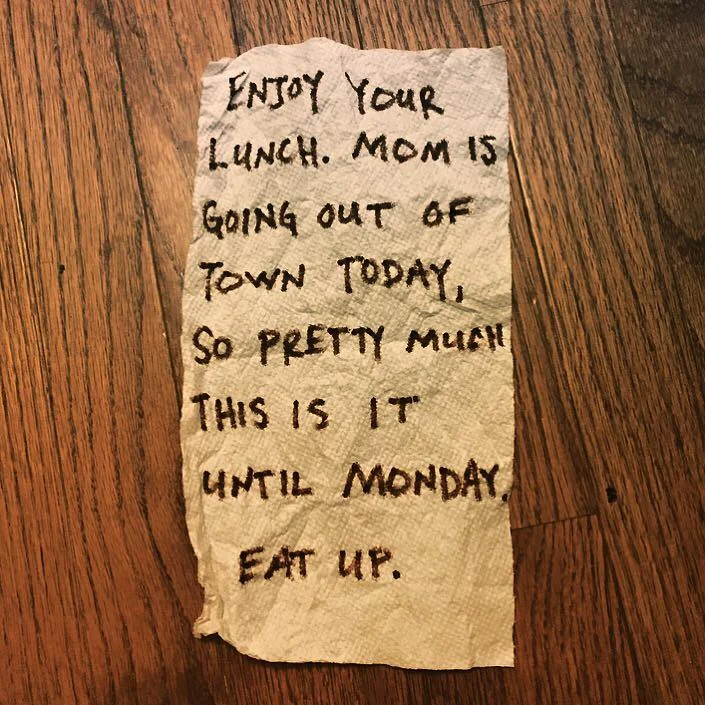 ENJOY YOUR
LUNCH. MOM IS
GOING OUT OF
TOWN TODAY,
SO PRETTY MUCH
THIS IS IT
UNTIL MONDAY.
EAT UP.